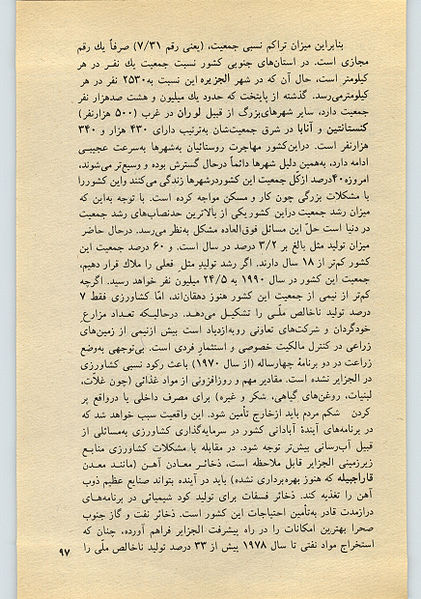 بنابراین میزان تراکم نسبی جمعیت، (یعنی رقم ۷/۳۱) صرفاً یك رقم
مجازی است. در استان‌های جنوبی کشور نسبت جمعیت یك نفـر در هر
کیلومتر است، حال آن که در شهر الجزیره این نسبت به ۲۵۳۰ نفر در هر
کیلومترمی‌رسد. گذشته از پایتخت که حدود یك میلیون و هشت صدهزار نفر
جمعیت دارد، سایر شهرهای‌بزرگ از قبیل لوران در غرب (۵۰۰ هزارنفر)
کنستانتین و آنابا در شرق جمعیت‌شان به‌ترتیب دارای ۴۳۰ هزار و ۳۴۰
هزارنفر است. دراین‌کشور مهاجرت روستائیان به‌شهرها به‌سرعت عجیبـی
ادامه دارد، به‌همین دلیل شهرها دائماً درحال گسترش بوده و وسیع‌تر می‌شوند،
امروزه ۴۰درصد ازکلّ جمعیت این کشوردرشهرها زندگی می‌کنند واین کشوررا
با مشکلات بزرگی چون کار و مسکن مواجه کرده است. با توجه به‌این که
میزان رشد جمعیت دراین کشور یکی از بالاترین حدنصاب‌های رشد جمعیت
در دنیا است حلّ این مسائل فوق‌العاده مشکل به‌نظر می‌رسد. درحال حاضر
میزان تولید مثل بالغ بر ۳/۲ درصد در سال است، و ۶۰ درصد جمعیت این
کشور کم‌تر از ۱۸ سال دارند. اگر رشد تولیدِ مثلِ فعلی را ملاك قرار دهیم،
جمعیت این کشور در سال ۱۹۹۰ به ۲۴/۵ میلیون نفر خواهد رسید. اگرچه
کم‌تر از نیمی از جمعیت این کشور هنوز دهقان‌اند، امّا کشاورزی فقط ۷
درصد تولید ناخالص ملّـی را تشکیـل می‌دهـد. درحالیـکه تعـداد مزارع
خودگردان و شرکت‌های تعاونی روبه‌ازدیاد است بیش ازنیمی از زمین‌های
زراعی در کنترل مالکیت خصوصی و استثمار فردی است. بی‌توجهی به‌وضع
زراعت در دو برنامهٔ چهارساله (از سال ۱۹۷۰) باعث رکود نسبی کشاورزی
در الجزایر نشده است. مقادیر مهم و روزافزونی از مواد غذائی (چون غلّات،
لبنیات، روغن‌های گیاهی، شکر و غیره) برای مصرف داخلی یا درواقع پر
کردن شکم مردم باید ازخارج تأمین شود. این واقعیت سبب خواهد شد که
در برنامه‌های آیندهٔ آبادانی کشور در سرمایه‌گذاری کشاورزی به‌مسائلی از
قبیل آب‌رسانی بیش‌تر توجه شود. در مقابله با مشکلات کشاورزی منابـع
زیرزمینی الجزایر قابل ملاحظه است، ذخائـر معادن آهـن (ماننـد معـدن
قاراجبیله که هنوز بهره‌برداری نشده) باید در آینده بتواند صنایع عظیم ذوب
آهن را تغذیه کند. ذخائر فسفات برای تولید کود شیمیائی در برنامه‌هـای
درازمدت قادر به‌تأمین احتیاجات این کشور است. ذخائر نفت و گاز جنوب
صحرا بهترین امکانات را در راه پیشرفت الجزایر فراهم آورده، چنان که
استخراج مواد نفتی تا سال ۱۹۷۸ بیش از ۳۳ درصد تولید ناخالص ملّی را
۹۷